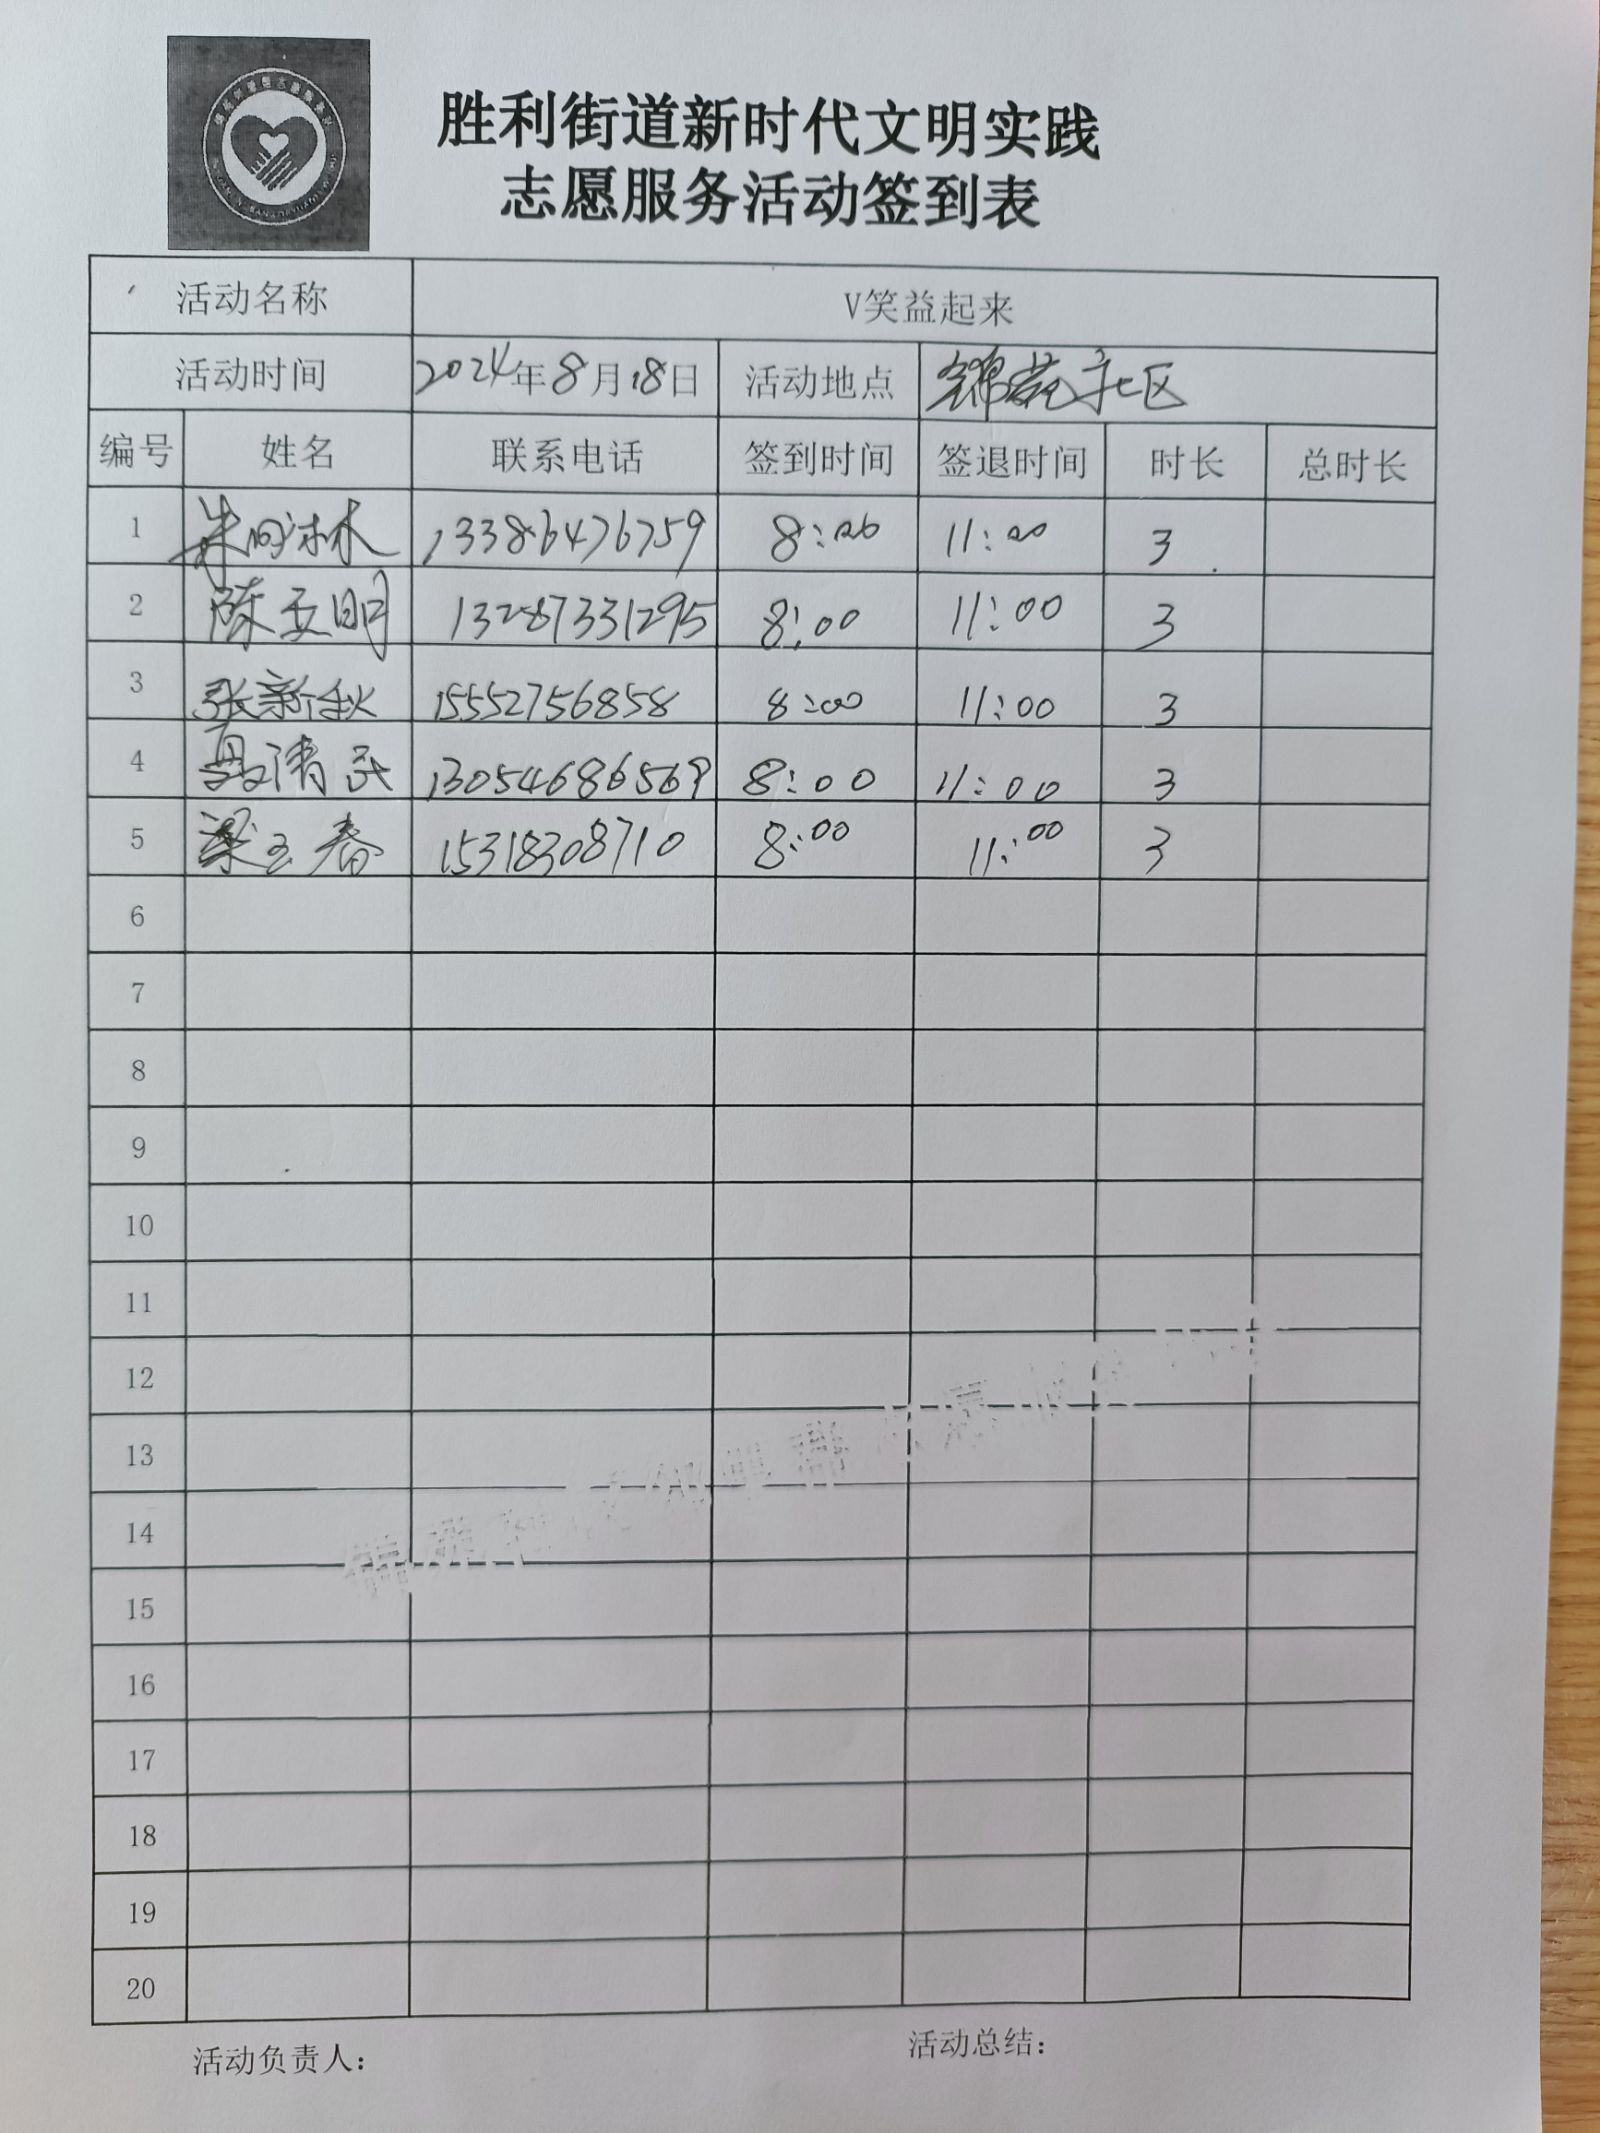 胜利街道新时代文明实践
志愿服务活动签到表
活动名称 V笑益起来
活动时间 2024年8月18日 活动地点 锦苑社区
编号 姓名 联系电话 签到时间 签退时间 时长 总时长
1 朱 林 13386476759 8:00 11:00 3
2 陈玉明 13287331295 8:00 11:00 3
3 张新秋 15552756858 8:00 11:00 3
4 聂清民 13054686569 8:00 11:00 3
5 梁玉春 15318308710 8:00 11:00 3
6
7
8
9
10
11
12
13
14
15
16
17
18
19
20
活动负责人： 活动总结：